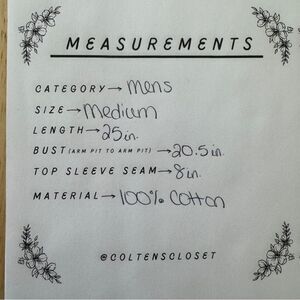 MEASUREMENTS
CATEGORY → Mens
SIZE → Medium
LENGTH → 25in.
BUST (ARM PIT TO ARM PIT) → 20.5in.
TOP SLEEVE SEAM → 8in.
MATERIAL → 100% Cotton
@COLTENSCLOSET